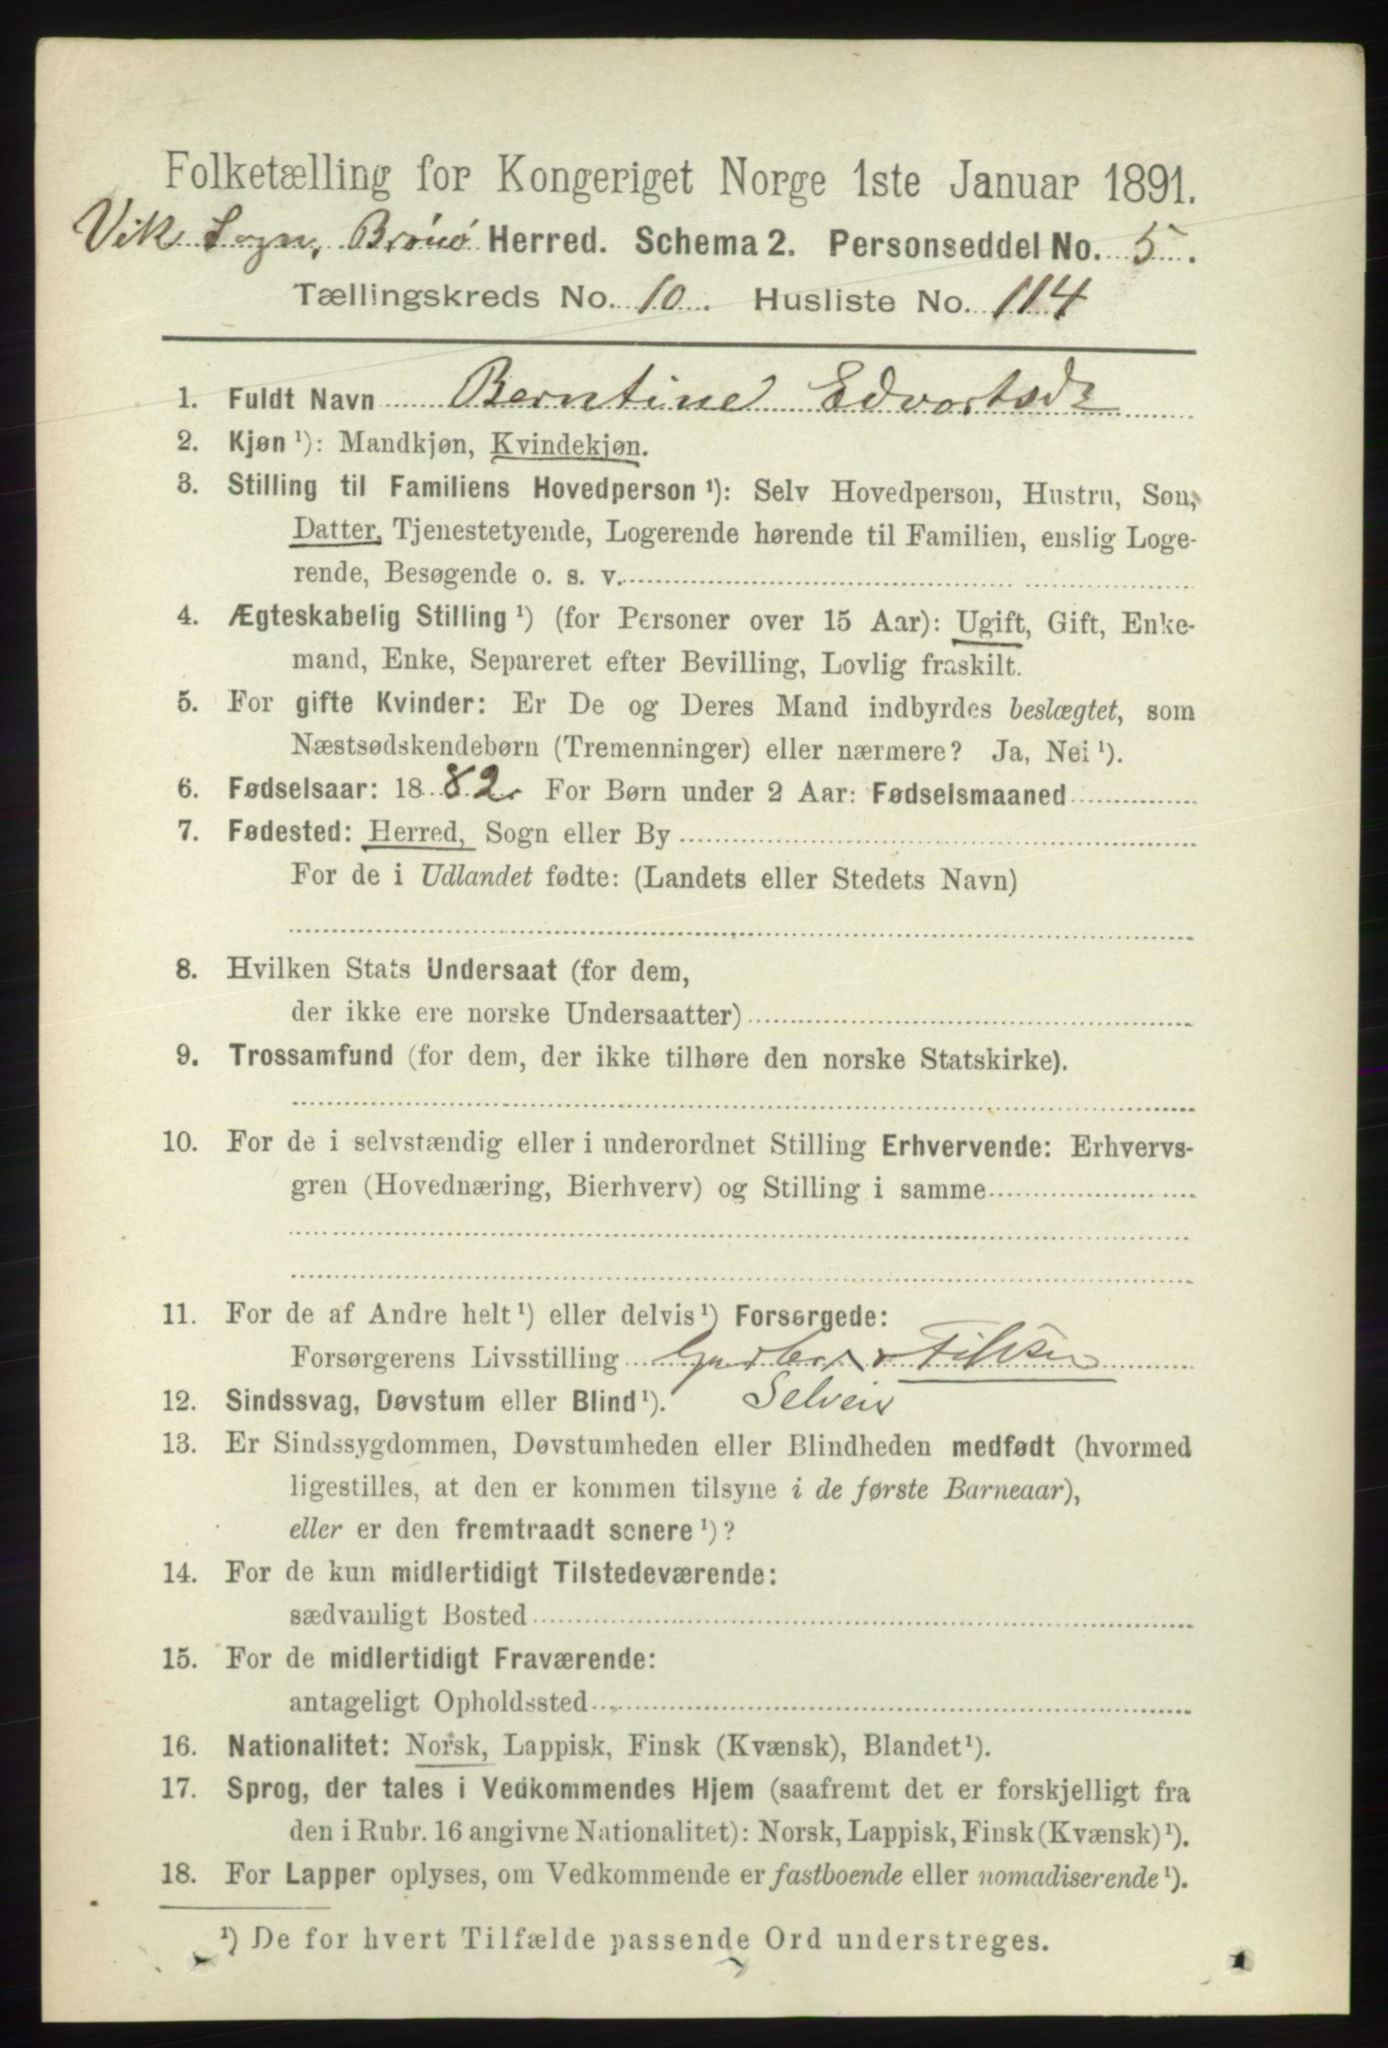 Folketælling for Kongeriget Norge 1ste Januar 1891.
Vik Sogn, Brönö Herred. Schema 2. Personseddel No. 5.
Tællingskreds No. 10. Husliste No. 114
1. Fuldt Navn Berntine Edvartsdr
2. Kjøn ¹): Mandkjøn, Kvindekjøn.
3. Stilling til Familiens Hovedperson ¹): Selv Hovedperson, Hustru, Søn,
Datter, Tjenestetyende, Logerende hørende til Familien, enslig Loge-
rende, Besøgende o. s. v.
4. Ægteskabelig Stilling ¹) (for Personer over 15 Aar): Ugift, Gift, Enke-
mand, Enke, Separeret efter Bevilling, Lovlig fraskilt.
5. For gifte Kvinder: Er De og Deres Mand indbyrdes beslægtet, som
Næstsødskendebørn (Tremenninger) eller nærmere? Ja, Nei ¹).
6. Fødselsaar: 1882. For Børn under 2 Aar: Fødselsmaaned
7. Fødested: Herred, Sogn eller By
For de i Udlandet fødte: (Landets eller Stedets Navn)
8. Hvilken Stats Undersaat (for dem,
der ikke ere norske Undersaatter)
9. Trossamfund (for dem, der ikke tilhøre den norske Statskirke).
10. For de i selvstændig eller i underordnet Stilling Erhvervende: Erhvervs-
gren (Hovednæring, Bierhverv) og Stilling i samme
11. For de af Andre helt ¹) eller delvis ¹) Forsørgede:
Forsørgerens Livsstilling
12. Sindssvag, Døvstum eller Blind ¹). Selveis
13. Er Sindssygdommen, Døvstumheden eller Blindheden medfødt (hvormed
ligestilles, at den er kommen tilsyne i de første Barneaar),
eller er den fremtraadt senere ¹)?
14. For de kun midlertidigt Tilstedeværende:
sædvanligt Bosted
15. For de midlertidigt Fraværende:
antageligt Opholdssted
16. Nationalitet: Norsk, Lappisk, Finsk (Kvænsk), Blandet ¹).
17. Sprog, der tales i Vedkommendes Hjem (saafremt det er forskjelligt fra
den i Rubr. 16 angivne Nationalitet): Norsk, Lappisk, Finsk (Kvænsk) ¹).
18. For Lapper oplyses, om Vedkommende er fastboende eller nomadiserende ¹).
¹) De for hvert Tilfælde passende Ord understreges.